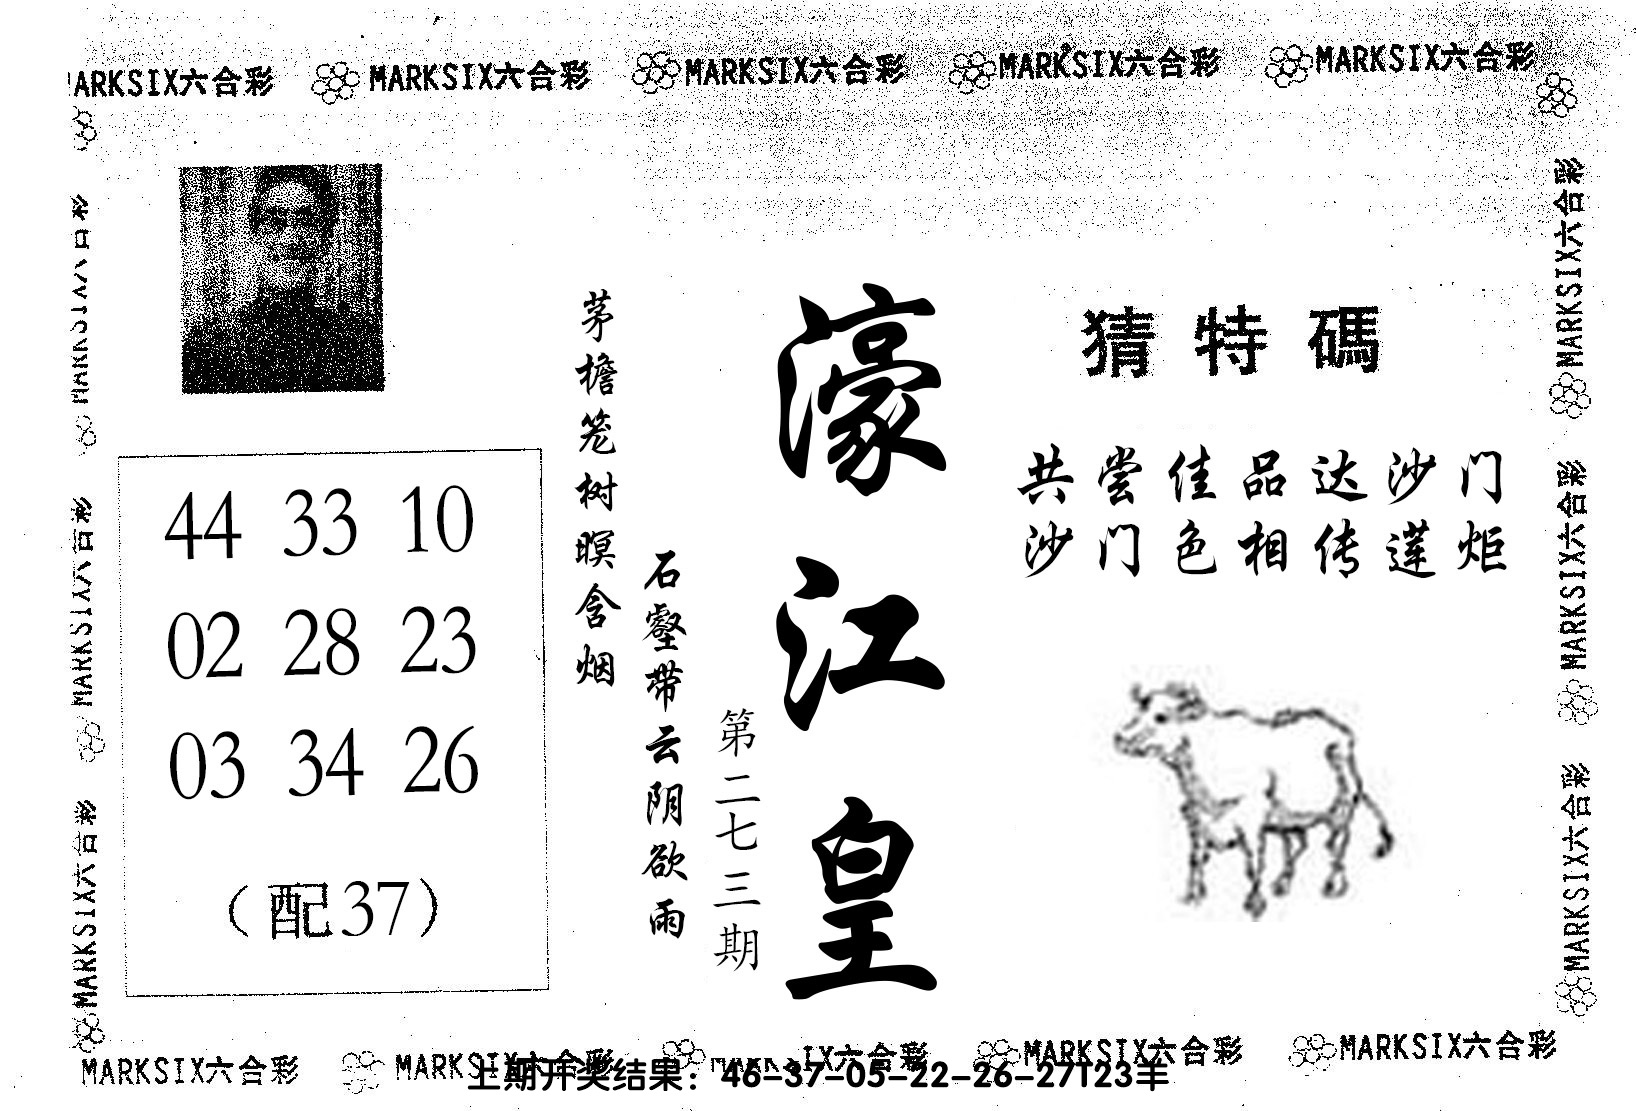 MARKSIX六合彩 MARKSIX六合彩 MARKSIX六合彩 MARKSIX六合彩 MARKSIX六合彩
猜特碼
共尝佳品达沙门
沙门色相传莲炬
濠江皇
第二七三期
石壑带云阴欲雨
茅檐笼树暝含烟
44 33 10
02 28 23
03 34 26
（配37）
MARKSIX六合彩
MARKSIX六合彩
MARKSIX六合彩
MARKSIX六合彩
MARKSIX六合彩
MARKSIX六合彩
MARKSIX六合彩 MARKSIX六合彩 IX六合彩 MARKSIX六合彩 MARKSIX六合彩
上期开奖结果：46-37-05-22-26-27T23羊